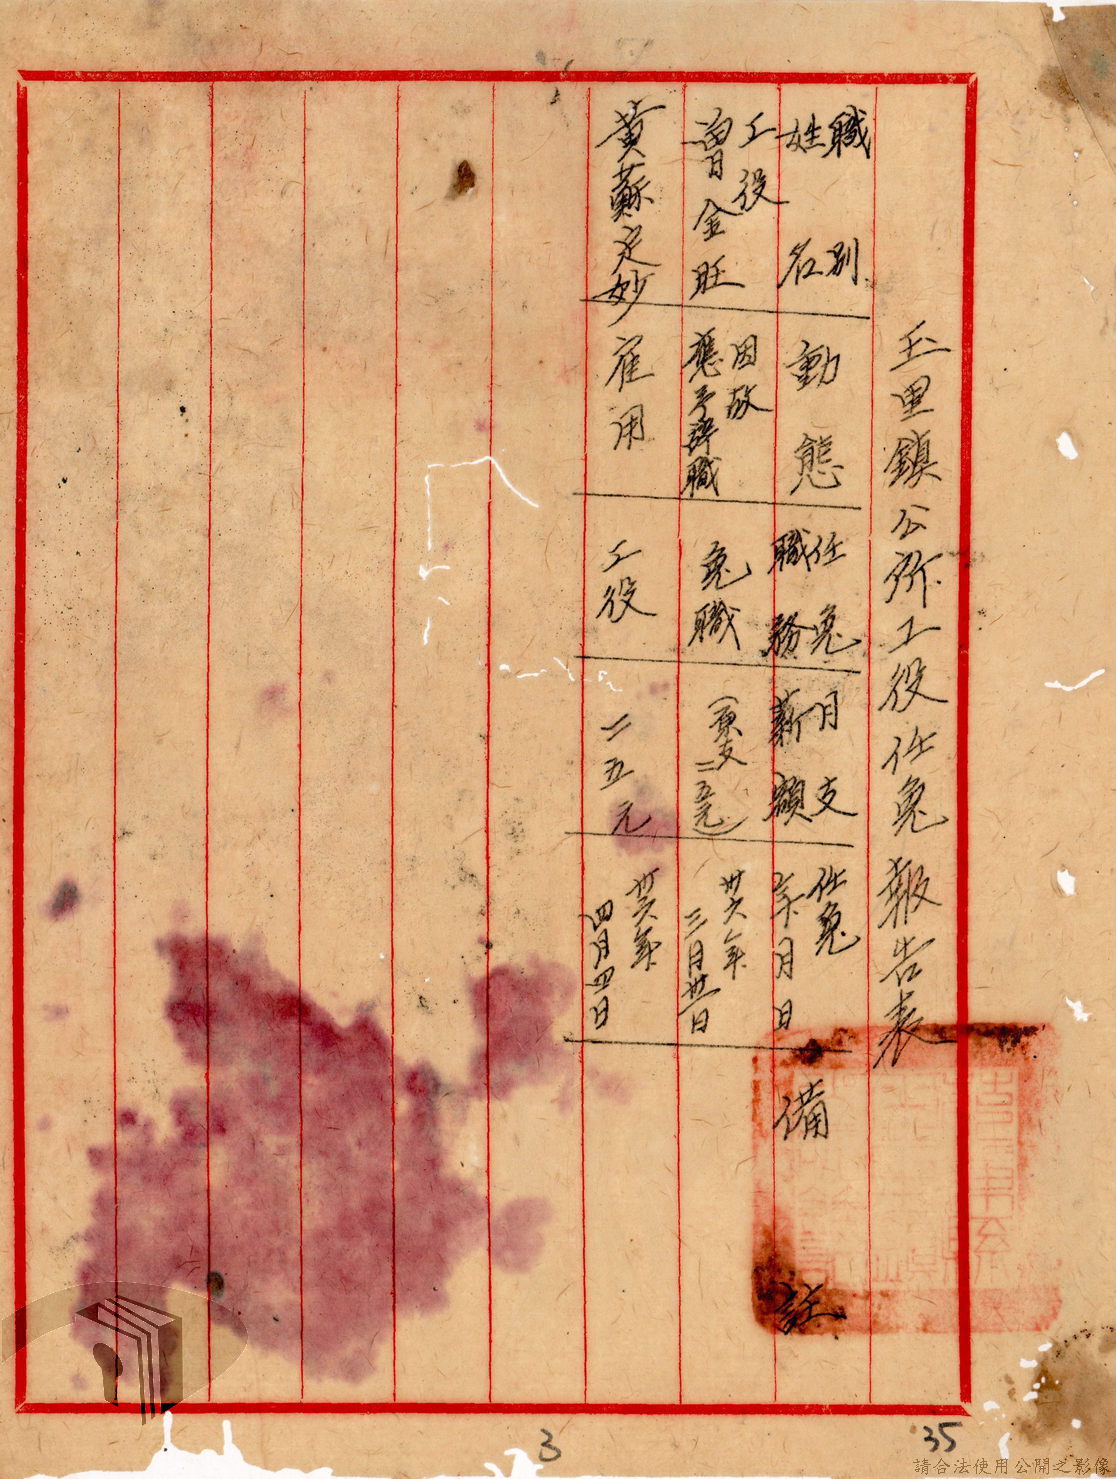 玉里鎮公所工役任免報告表
職別
姓名
動態
任免
職務
月支
薪額
任免
年月日
備註
工役
曾金旺
因故
應予辭職
免職
(原支二五元)
卅六年
三月卅一日
黃蘇定妙
雇用
工役
二五元
卅六年
四月四日
3
35
請合法使用公開之影像